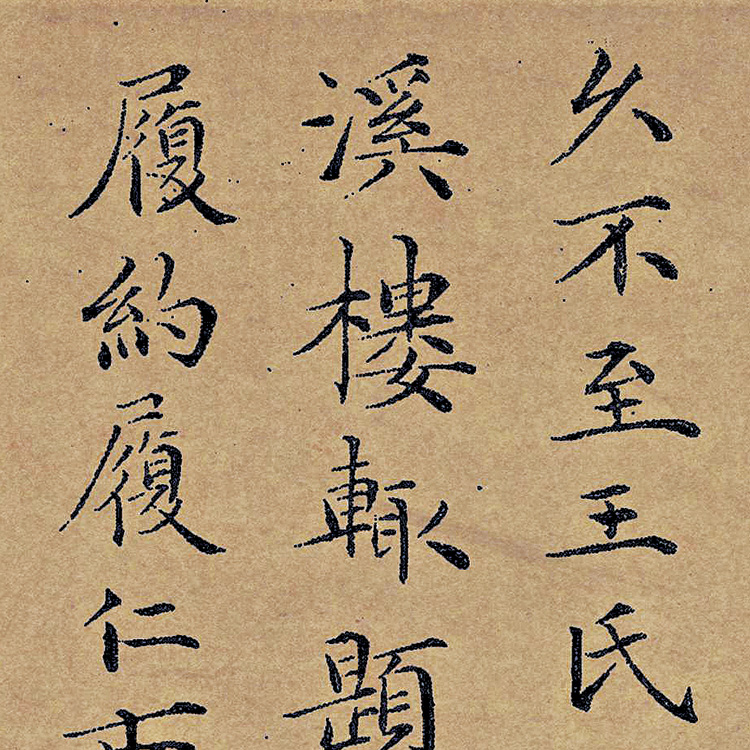 久不至王氏
溪樓輙題
履約履仁